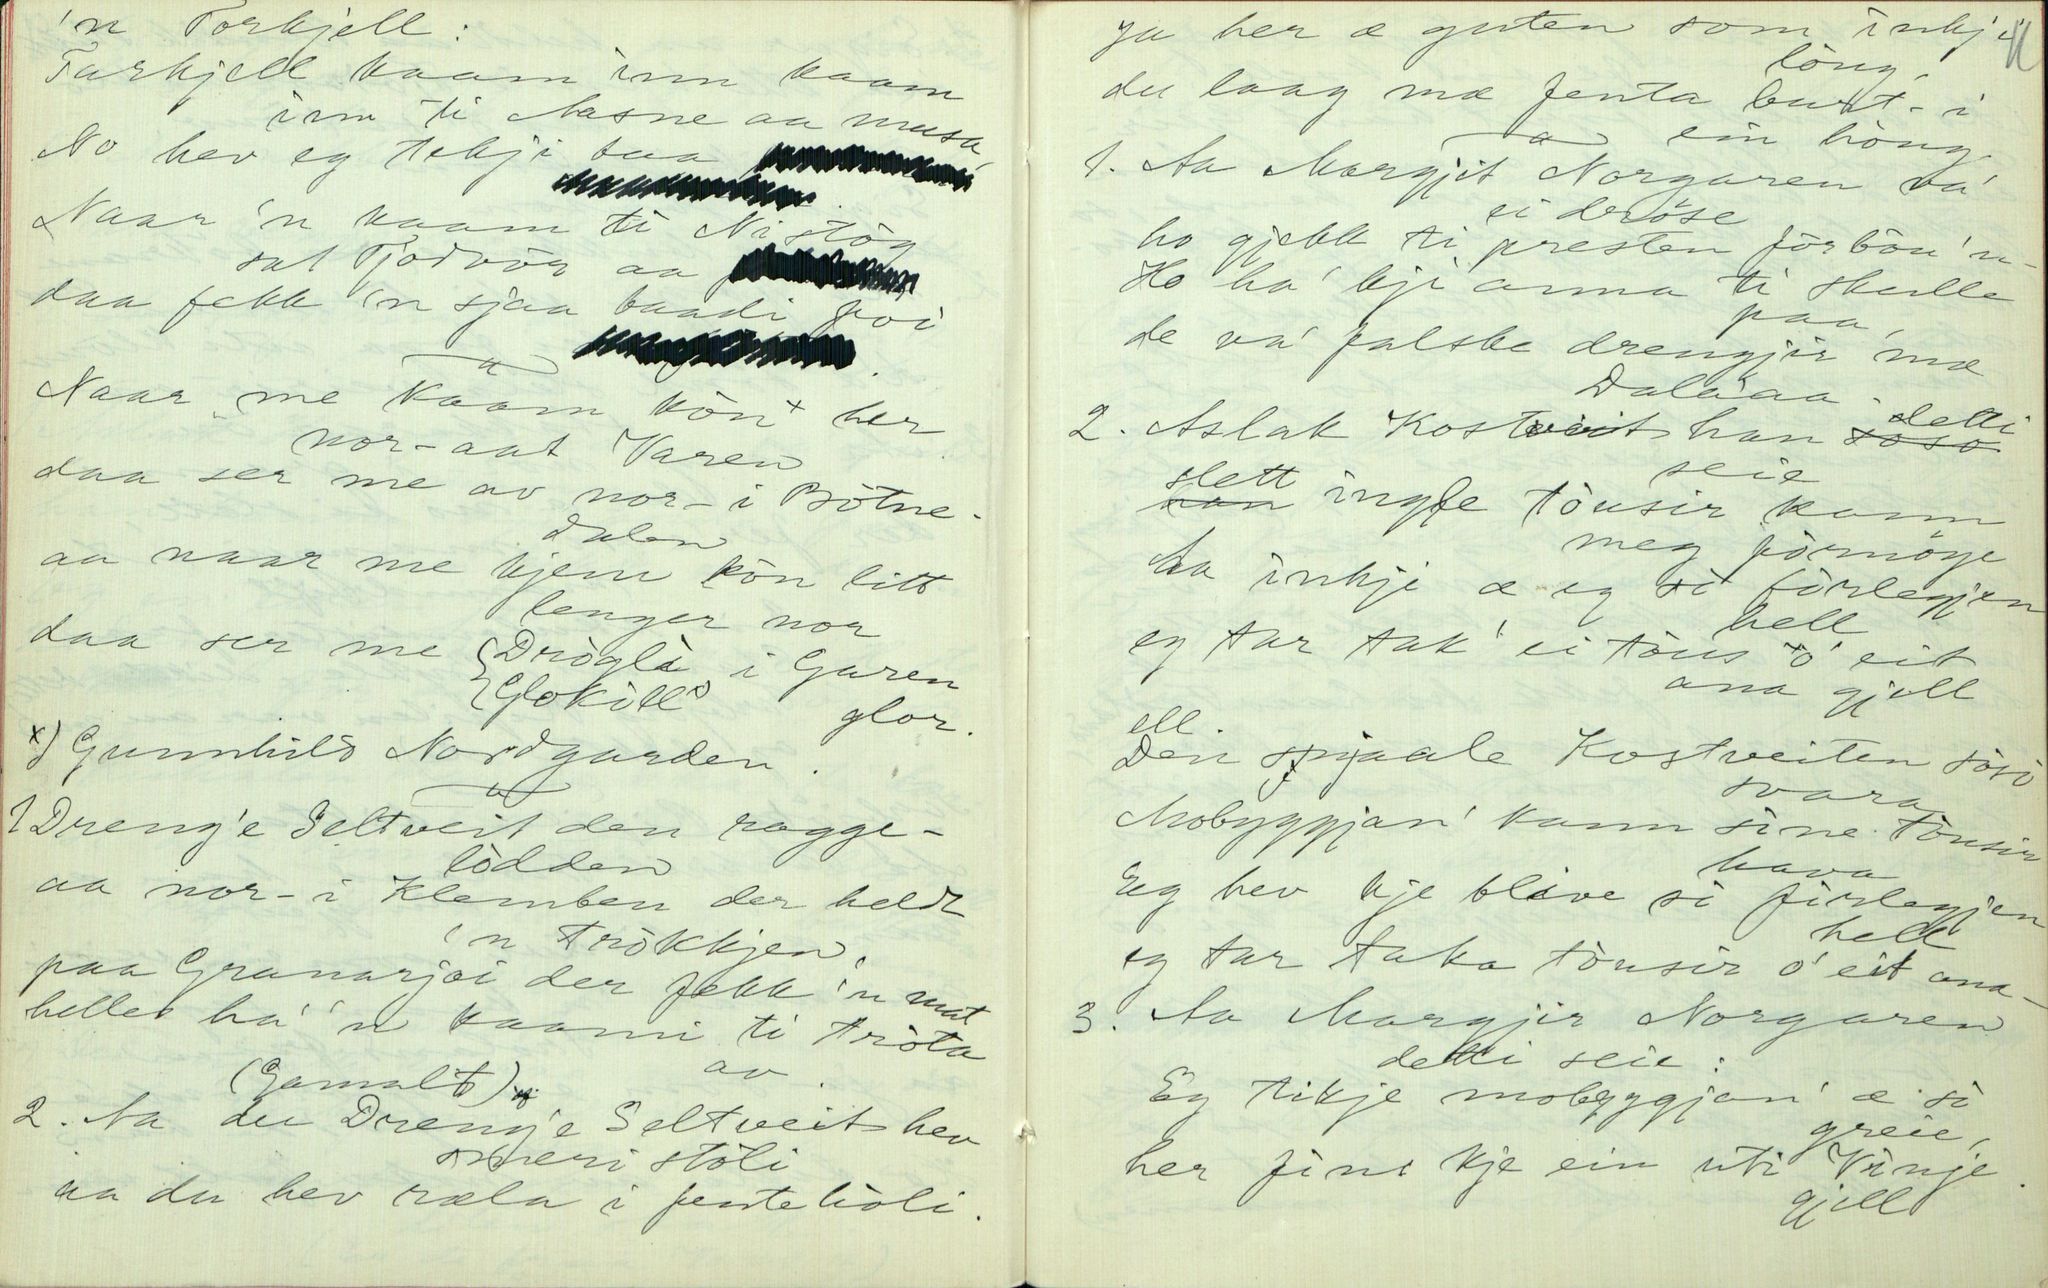 'n Torkjell:
Tarkjell kaam inn kaam
inn ti Nasne aa musa,
No hev eg tekji taa
Naar 'n kaam ti Nistòg
sat Tjodvör aa
daa fekk 'n sjaa baadi
Naar me kaam kön x her
nor-aat Varen
daa ser me av nor-i Bötne-
dalen
aa naar me kjem kön litt
lenger nor
daa ser me Dröglè i Garen
Glokill glor.
x) Gunnhild Nordgarden.
1 Dreng'e Seltveit den ragge-
lòdden
aa nor-i Klemben der heldt
'n tròkkjen,
paa Granarjòi der fekk 'n mat
helles há 'n kaami ti tròta
av.
(Gamalt)
2. Aa du Dreng'e Seltveit hev
smeri stöli
aa du hev ræla i jentehòli.
Ja her æ guten som inkji
löng,
du laag mæ jenta burt-i
ein höng
1. Aa Margjit Norgaren vá
ei deröse
ho gjekk ti presten förbön 'n-
Ho ha' kji anna ti skulle
paa,
de vá falske drengjir mæ
Dalaaa.
2. Aslak Kostveit han soso detti
seie
han slett ingje tòusir kann
meg förmöge
Aa inkji æ eg sò förlegjen
hell
eg tar tak' ei tòus ò' eit
ana gjell
ell.
Den spjaale Kostveiten sòsò
svara
Mobyggjan' kann sine tòusir
hava
Eg hev kje blive sò förlegjen
hell
eg tar taka tòusir ò' eit ana-
3. Aa Margjir Norgaren
detti seie:
Eg tikje mobyggjan' æ sò
greie,
her fins kje ein uti Vinje
gjell.